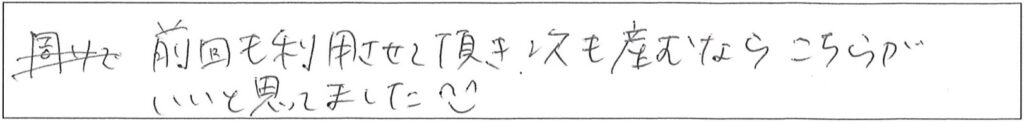 前回も利用させて頂き次も産むなら こちらが
いいと思ってました